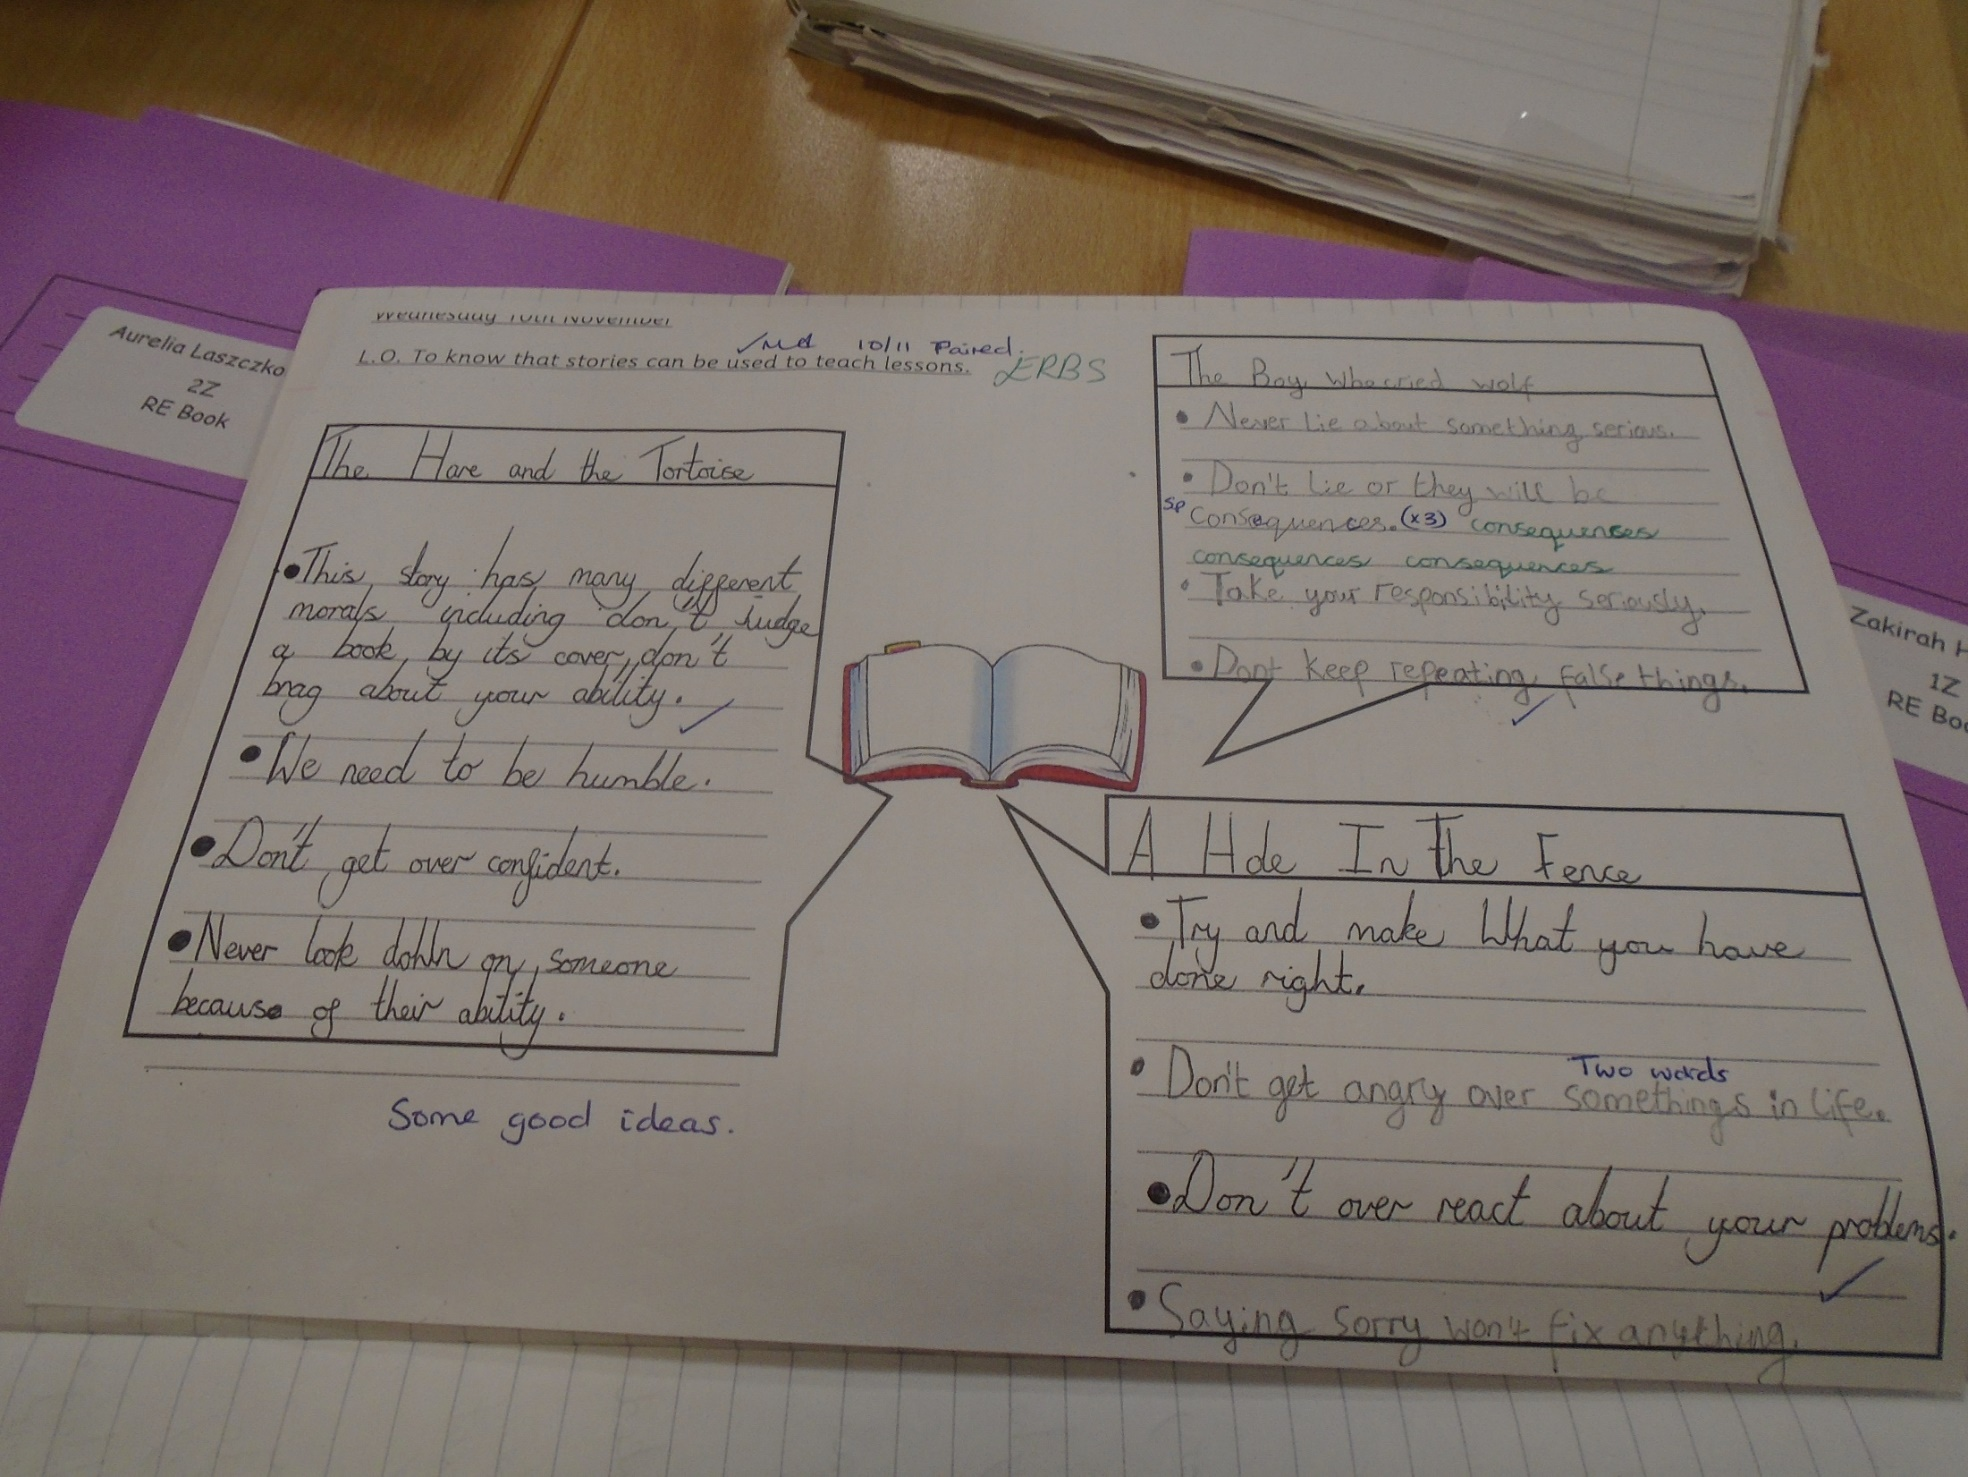 Aurelia Laszczko
2Z
RE Book
Wednesday 10th November
L.O. To know that stories can be used to teach lessons.
10/11 Paired.
ERBS
The Hare and the Tortoise
• This story has many different
morals including don't judge
a book by its cover, don't
brag about your ability.
• We need to be humble.
• Don't get over confident.
• Never look down on someone
because of their ability.
Some good ideas.
The Boy Who cried wolf
• Never Lie about something serious.
• Don't Lie or they will be
sp consequences. (x3) consequences
consequences consequences
• Take your responsibility seriously.
• Dont keep repeating false things.
A Hole In The Fence
• Try and make What you have
done right.
Two words
• Don't get angry over somethings in life.
• Don't over react about your problems.
• Saying sorry won't fix anything.
Zakirah H
1Z
RE Boo